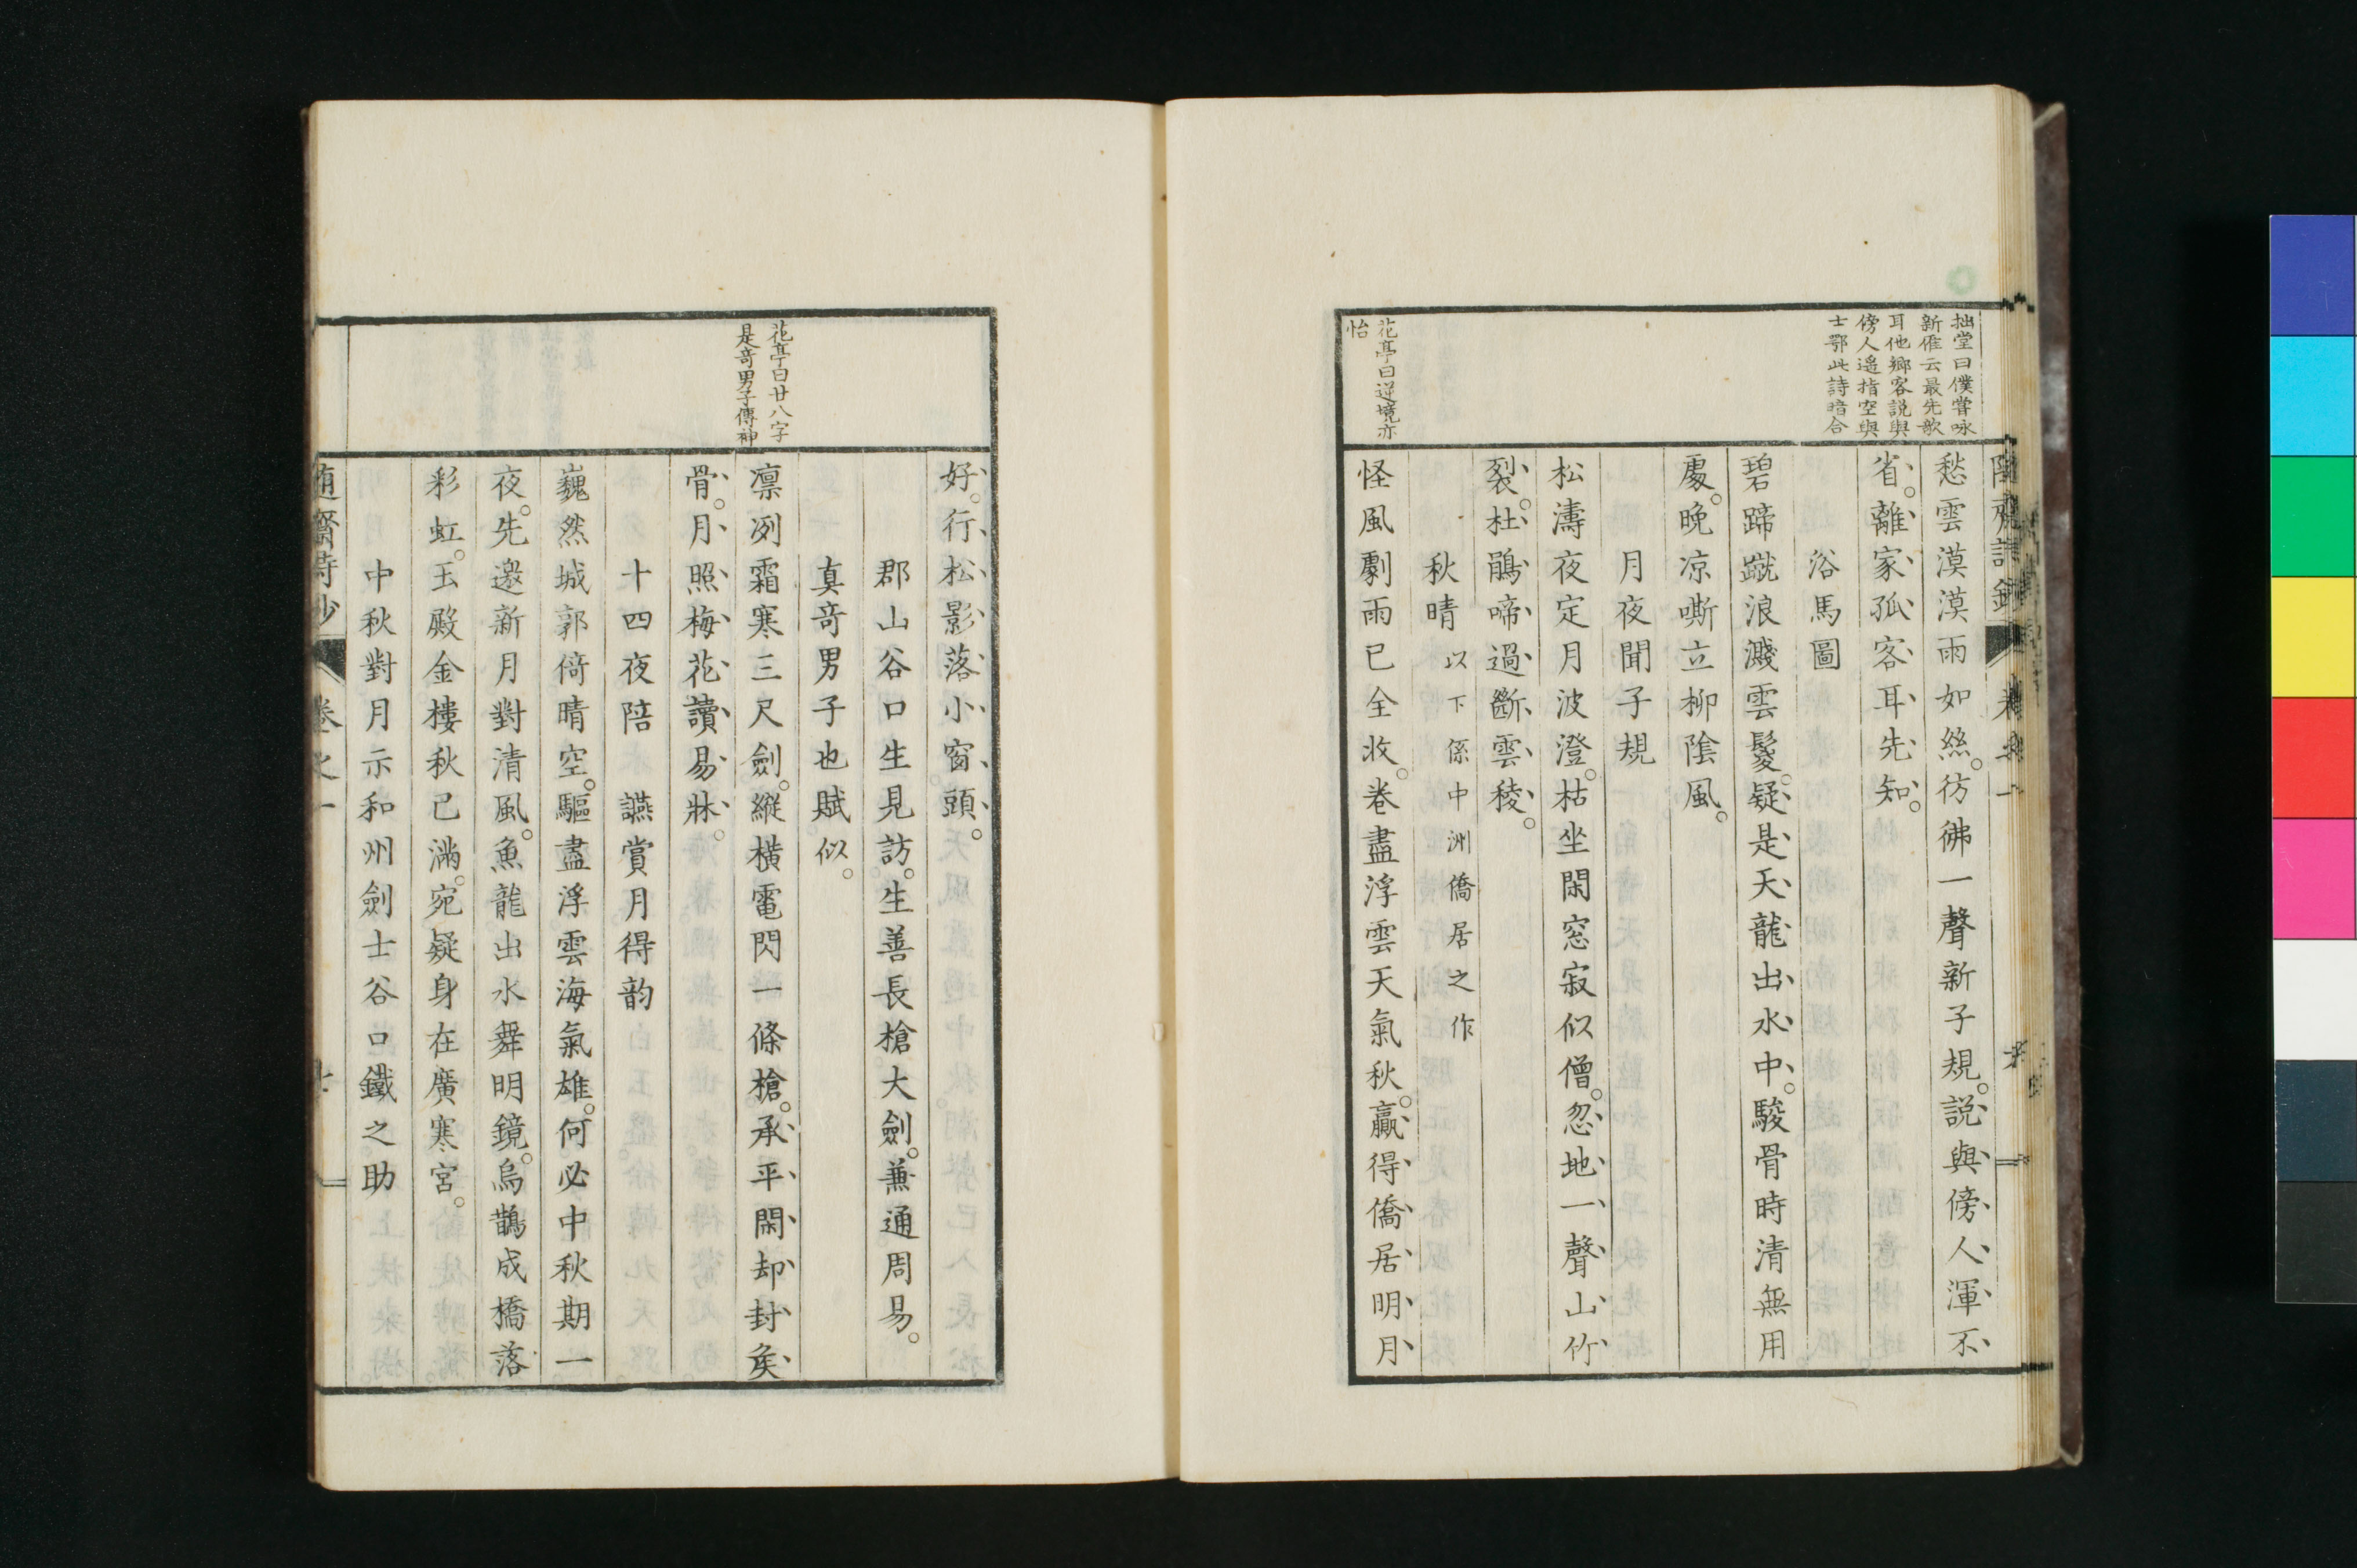 拙堂曰僕嘗咏
新隺云最先歌
耳他鄉客説與
傍人遥指空與
士鄂此詩暗合
愁雲漠漠雨如絲。彷彿一聲新子規。説與傍人渾不
省。離家孤客耳先知。
浴馬圖
碧蹄蹴浪濺雲鬉。疑是天龍出水中。駿骨時清無用
處。晚凉嘶立柳陰風。
月夜聞子規
松濤夜定月波澄。枯坐閑窓寂似僧。忽地一聲山竹
裂。杜鵑啼過斷雲稜。
秋晴 以下係中洲僑居之作
花亭曰逆境亦
怡
怪風劇雨已全收。卷盡浮雲天氣秋。贏得僑居明月
好。行松影落小窗頭。
郡山谷口生見訪。生善長槍大劍。兼通周易。
真奇男子也賦似。
花亭曰廿八字
是奇男子傳神
凛冽霜寒三尺劍。縱橫電閃一條槍。承平閑却封矦
骨。月照梅花讀易牀。
十四夜陪 讌賞月得韵
巍然城郭倚晴空。驅盡浮雲海氣雄。何必中秋期一
夜。先邀新月對清風。魚龍出水舞明鏡。烏鵲成橋落
彩虹。玉殿金樓秋已滿。宛疑身在廣寒宮。
中秋對月示和州劍士谷口鐵之助
隨齋詩抄 卷之一